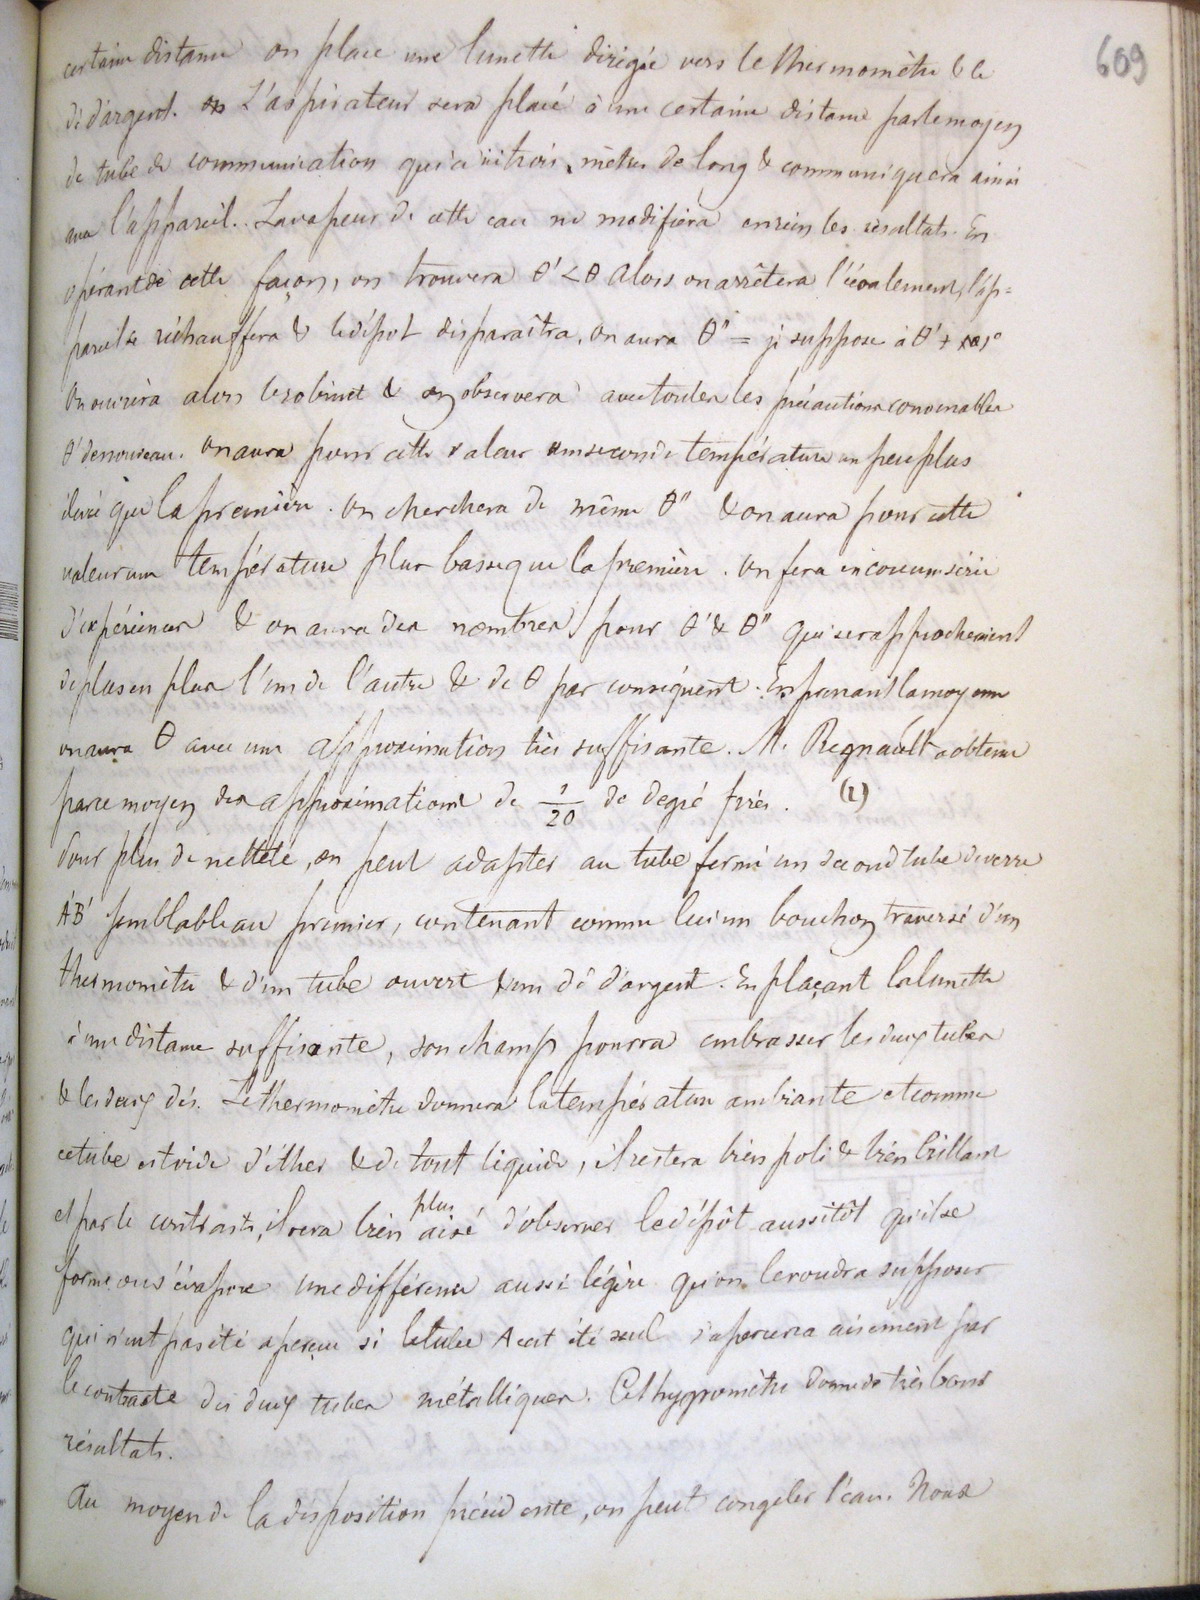 609
certaine distance on place une lunette dirigée vers le thermomètre & le
dé d'argent. L'aspirateur sera placé à une certaine distance par le moyen
de tube de communication qui a mètres de long & communiquera ainsi
avec l'appareil. La vapeur de cette eau ne modifiera en rien les résultats. En
opérant de cette façon, on trouvera θ' < θ alors on arrêtera l'écoulement, l'ap=
pareil se réchauffera & le dépôt disparaîtra. On aura θ" = je suppose à θ' +
On ouvrira alors le robinet & on observera avec toutes les précautions convenables
θ' de nouveau. On aura pour cette valeur une seconde température un peu plus
élevée que la première. On cherchera de même θ" & on aura pour cette
valeur une température plus basse que la première. On fera une série
d'expériences & on aura des nombres pour θ' & θ" qui se rapprocheraient
de plus en plus l'un de l'autre & de θ par conséquent. En prenant la moyenne
on aura θ avec une approximation très suffisante. M. Regnault a obtenu
par ce moyen des approximations de 1/20 de degré près. (1)
Pour plus de netteté, on peut adapter au tube fermé un second tube de verre
A'B' semblable au premier, contenant comme lui un bouchon traversé d'un
thermomètre & d'un tube ouvert & un dé d'argent. En plaçant la lunette
à une distance suffisante, son champ pourra embrasser les deux tubes
& les deux dés. Le thermomètre donnera la température ambiante et comme
ce tube est vide d'éther & de tout liquide, il restera bien poli & bien brillant
et par le contraste, il sera bien plus aisé d'observer le dépôt aussitôt qu'il se
forme ou s'évapore une différence aussi légère qu'on le voudra supposer
qui n'eut pas été aperçue si le tube A eut été seul s'apercevra aisément par
le contraste des deux tubes métalliques. Cet hygromètre donne de très bons
résultats.
Au moyen de la disposition précédente, on peut congeler l'eau. Nous